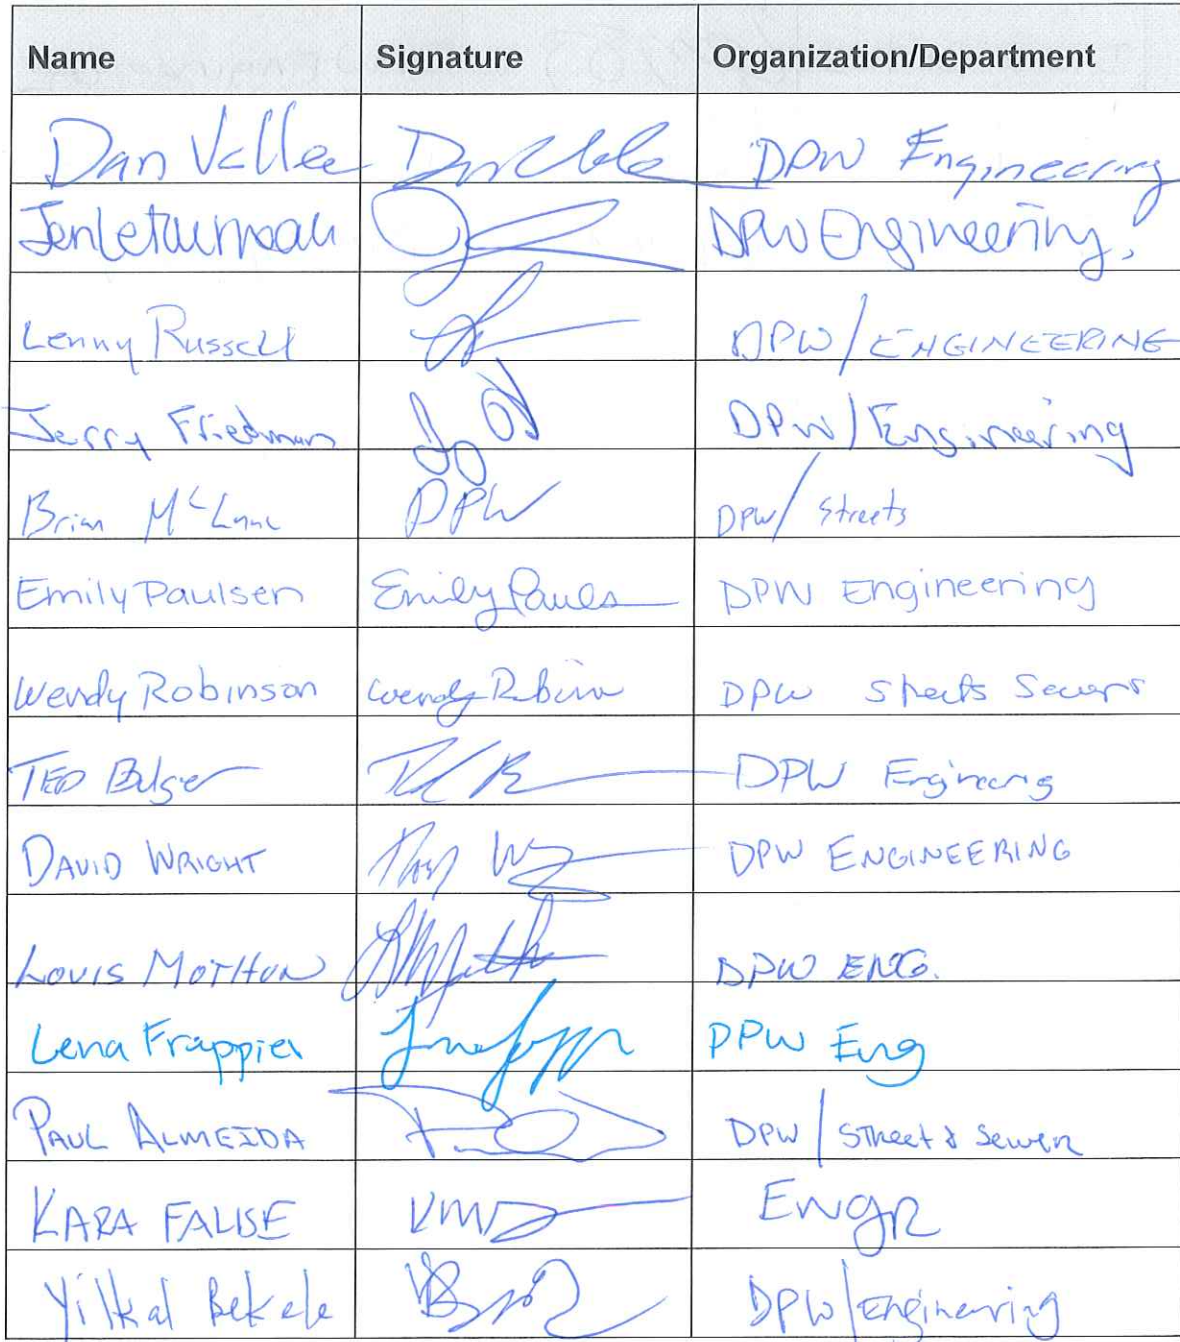 Name Signature Organization/Department
Dan Vallee DPW Engineering
Jen Letourneau DPW Engineering
Lenny Russell DPW/ENGINEERING
Jerry Friedman DPW/Engineering
Brian DPW DPW/Streets
Emily Paulsen Emily Pauls DPW Engineering
Wendy Robinson Wendy DPW Streets Sewers
TED Bulger DPW Engineering
DAVID WRIGHT DPW ENGINEERING
LOUIS MOTHON DPW ENG.
Lena Frappier DPW Eng
PAUL ALMEIDA DPW/Street & Sewer
KARA FALISE Engr
Yilkal Bekele DPW/engineering